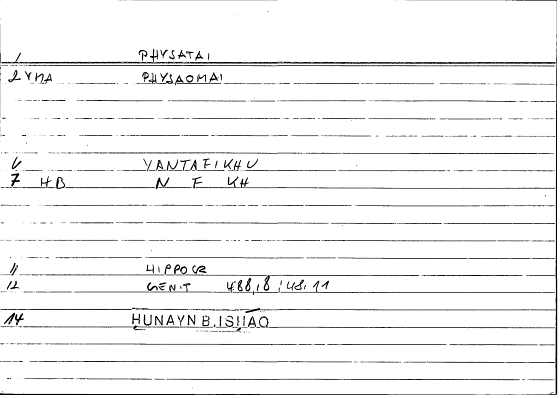 1 PHYSATAI
2 VMA PHYSAOMAI
6 YANTAFIKHU
7 HB N F KH
11 HIPPOCR
12 GENIT 488,8 / 48.11
14 ḤUNAYN B. ISḤĀQ